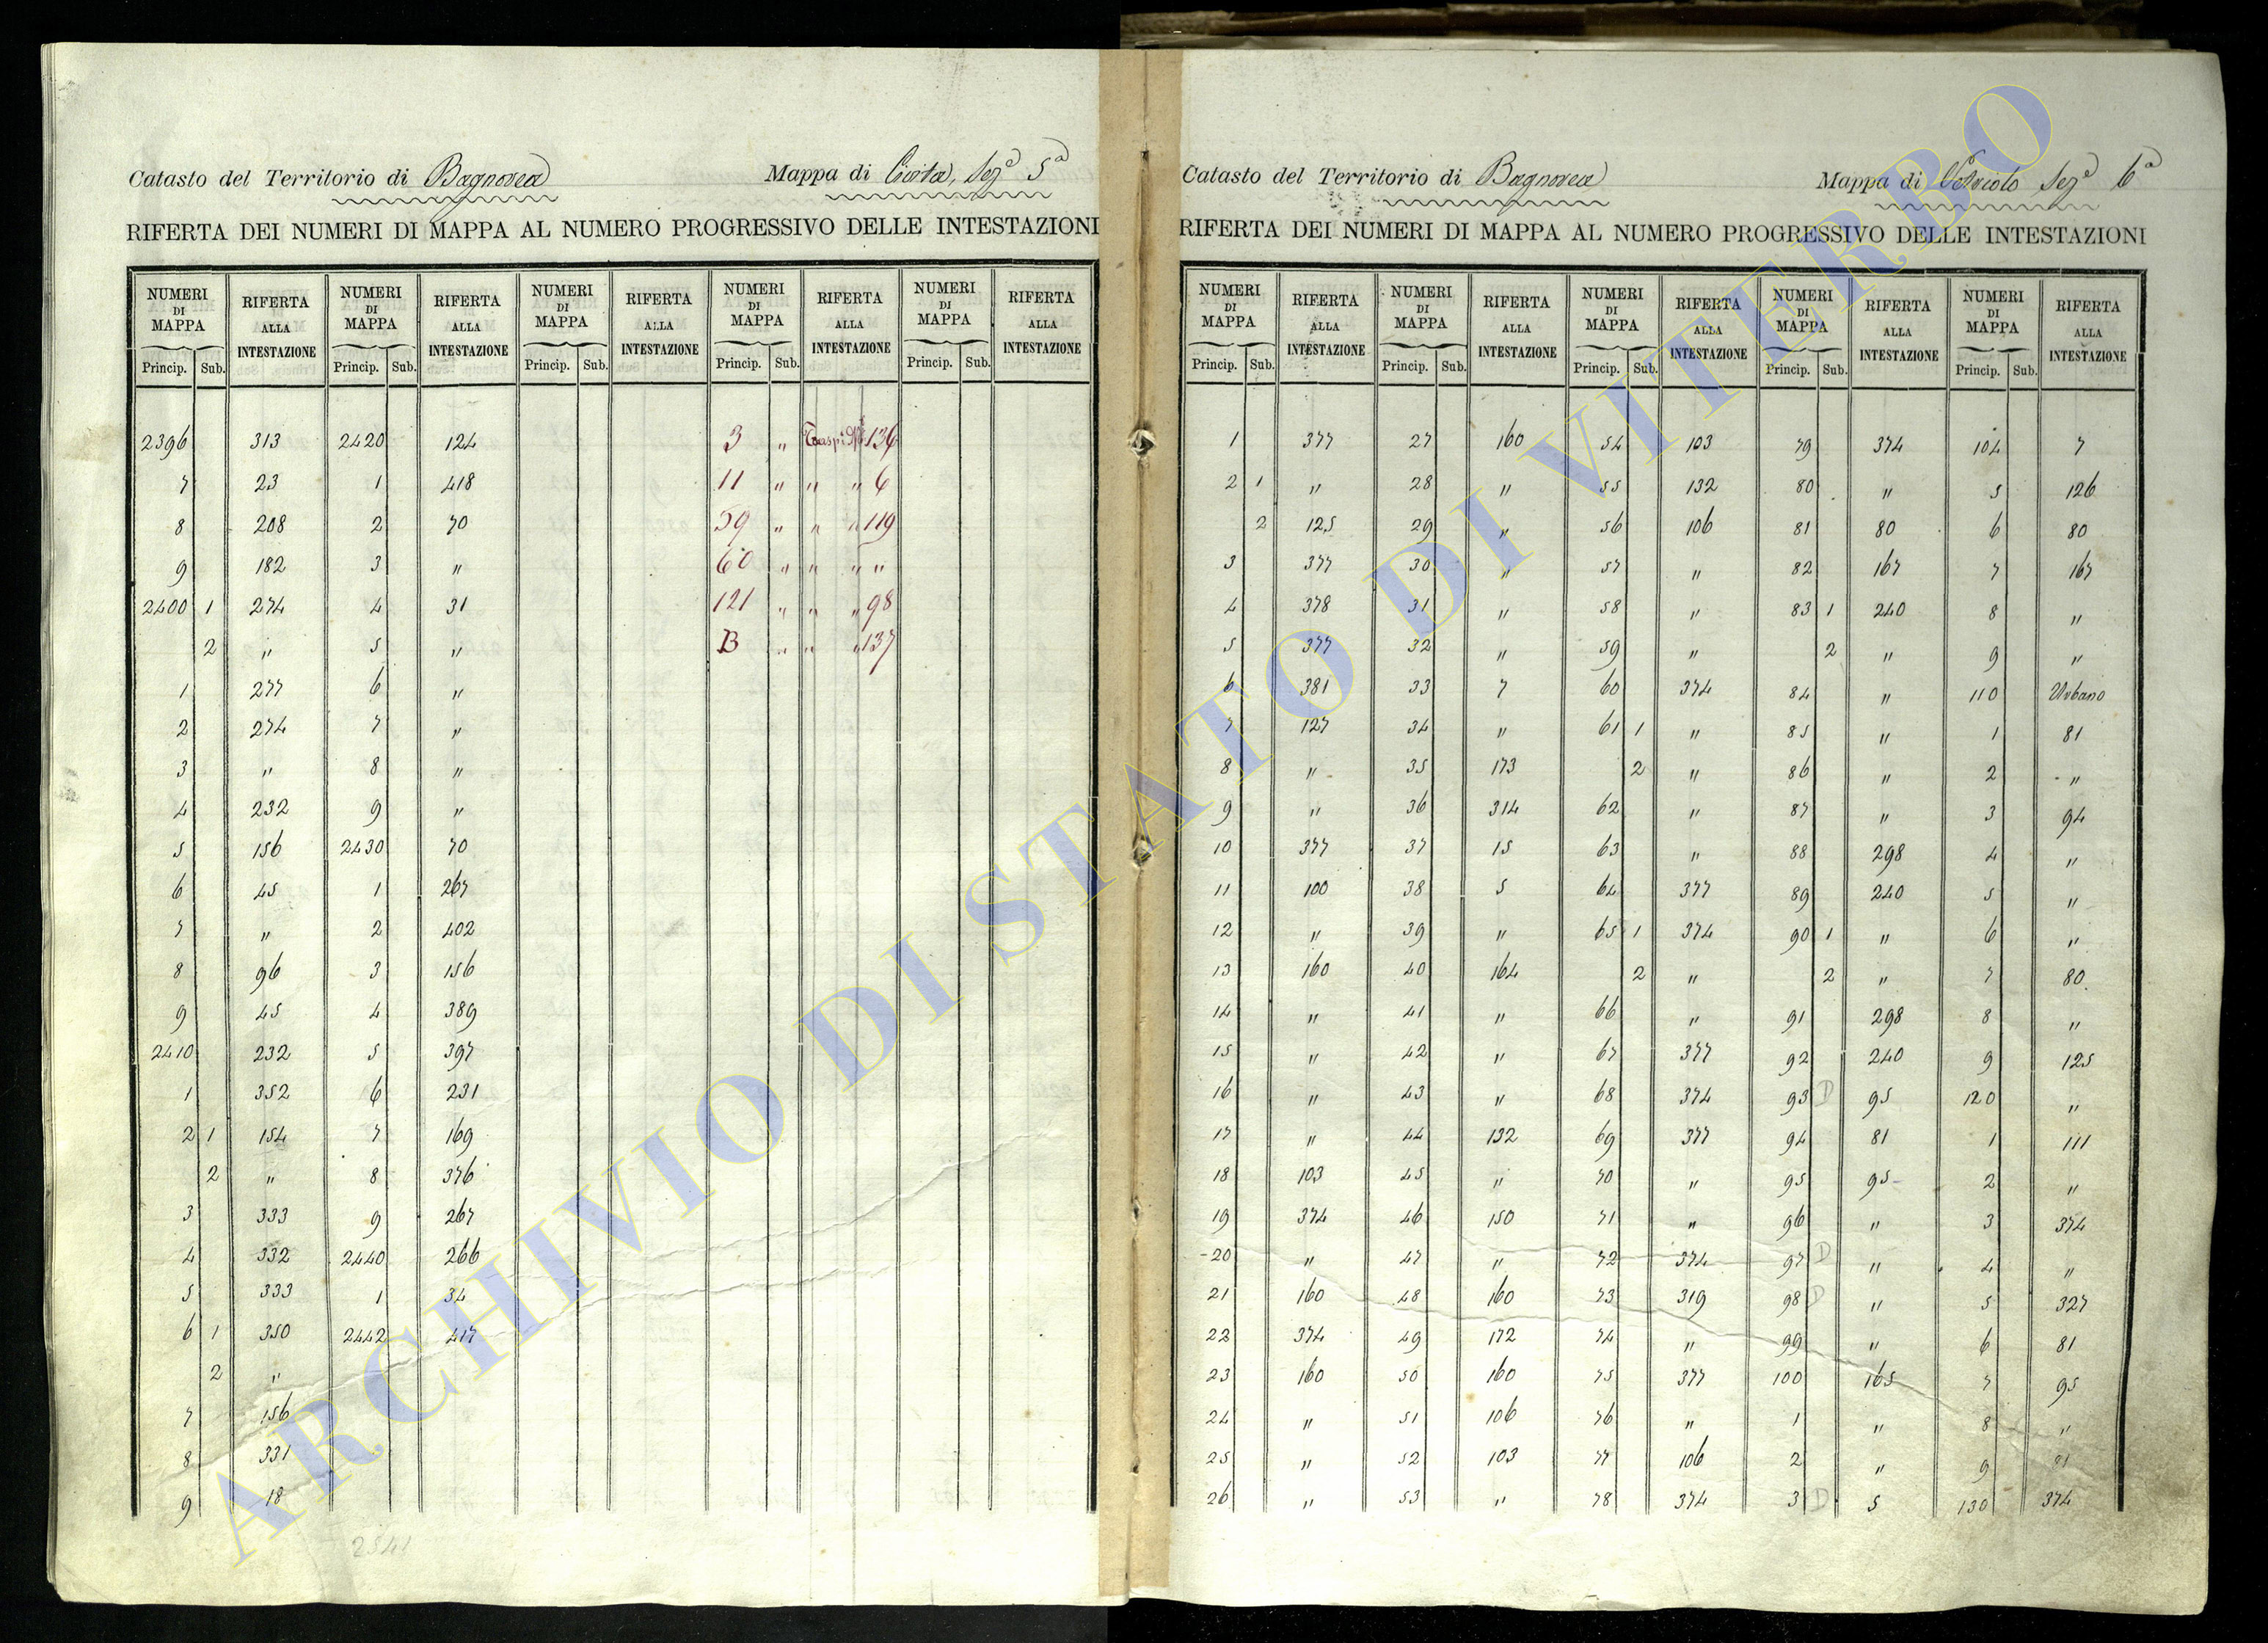 Catasto del Territorio di Bagnorea Mappa di Civita, Sez.e 5a
RIFERTA DEI NUMERI DI MAPPA AL NUMERO PROGRESSIVO DELLE INTESTAZIONI
NUMERI DI MAPPA RIFERTA ALLA INTESTAZIONE NUMERI DI MAPPA RIFERTA ALLA INTESTAZIONE NUMERI DI MAPPA RIFERTA ALLA INTESTAZIONE NUMERI DI MAPPA RIFERTA ALLA INTESTAZIONE NUMERI DI MAPPA RIFERTA ALLA INTESTAZIONE
Princip. Sub. Princip. Sub. Princip. Sub. Princip. Sub. Princip. Sub.
2396 313 2420 124 3 " 136
7 23 1 418 11 " " " 6
8 208 2 70 59 " " " 119
9 182 3 " 60 " " " "
2400 1 274 4 31 121 " " " 98
2 " 5 " B " " " 137
1 277 6 "
2 274 7 "
3 " 8 "
4 232 9 "
5 156 2430 70
6 45 1 267
7 " 2 402
8 96 3 156
9 45 4 389
2410 232 5 397
1 352 6 231
2 1 154 7 169
2 " 8 376
3 333 9 267
4 332 2440 266
5 333 1 34
6 1 350 2442 417
2 "
7 156
8 331
9 18
2541
Catasto del Territorio di Bagnorea Mappa di Sez.e 6a
RIFERTA DEI NUMERI DI MAPPA AL NUMERO PROGRESSIVO DELLE INTESTAZIONI
NUMERI DI MAPPA RIFERTA ALLA INTESTAZIONE NUMERI DI MAPPA RIFERTA ALLA INTESTAZIONE NUMERI DI MAPPA RIFERTA ALLA INTESTAZIONE NUMERI DI MAPPA RIFERTA ALLA INTESTAZIONE NUMERI DI MAPPA RIFERTA ALLA INTESTAZIONE
Princip. Sub. Princip. Sub. Princip. Sub. Princip. Sub. Princip. Sub.
1 377 27 160 54 103 79 374 104 7
2 1 " 28 " 55 132 80 " 5 126
2 125 29 " 56 106 81 80 6 80
3 377 30 " 57 " 82 167 7 167
4 378 31 " 58 " 83 1 240 8 "
5 377 32 " 59 " 2 " 9 "
6 381 33 7 60 374 84 " 110 Urbano
7 127 34 " 61 1 " 85 " 1 81
8 " 35 173 2 " 86 " 2 "
9 " 36 314 62 " 87 " 3 94
10 377 37 15 63 " 88 298 4 "
11 100 38 5 64 377 89 240 5 "
12 " 39 " 65 1 374 90 1 " 6 "
13 160 40 164 2 " 2 " 7 80
14 " 41 " 66 " 91 298 8 "
15 " 42 " 67 377 92 240 9 125
16 " 43 " 68 374 93 D 95 120 "
17 " 44 132 69 377 94 81 1 111
18 103 45 " 70 " 95 95 2 "
19 374 46 150 71 " 96 " 3 374
20 " 47 " 72 374 97 D " 4 "
21 160 48 160 73 319 98 D " 5 327
22 374 49 172 74 " 99 " 6 81
23 160 50 160 75 377 100 165 7 95
24 " 51 106 76 " 1 " 8 "
25 " 52 103 77 106 2 " 9 81
26 " 53 " 78 374 3 D 5 130 374
ARCHIVIO DI STATO DI VITERBO